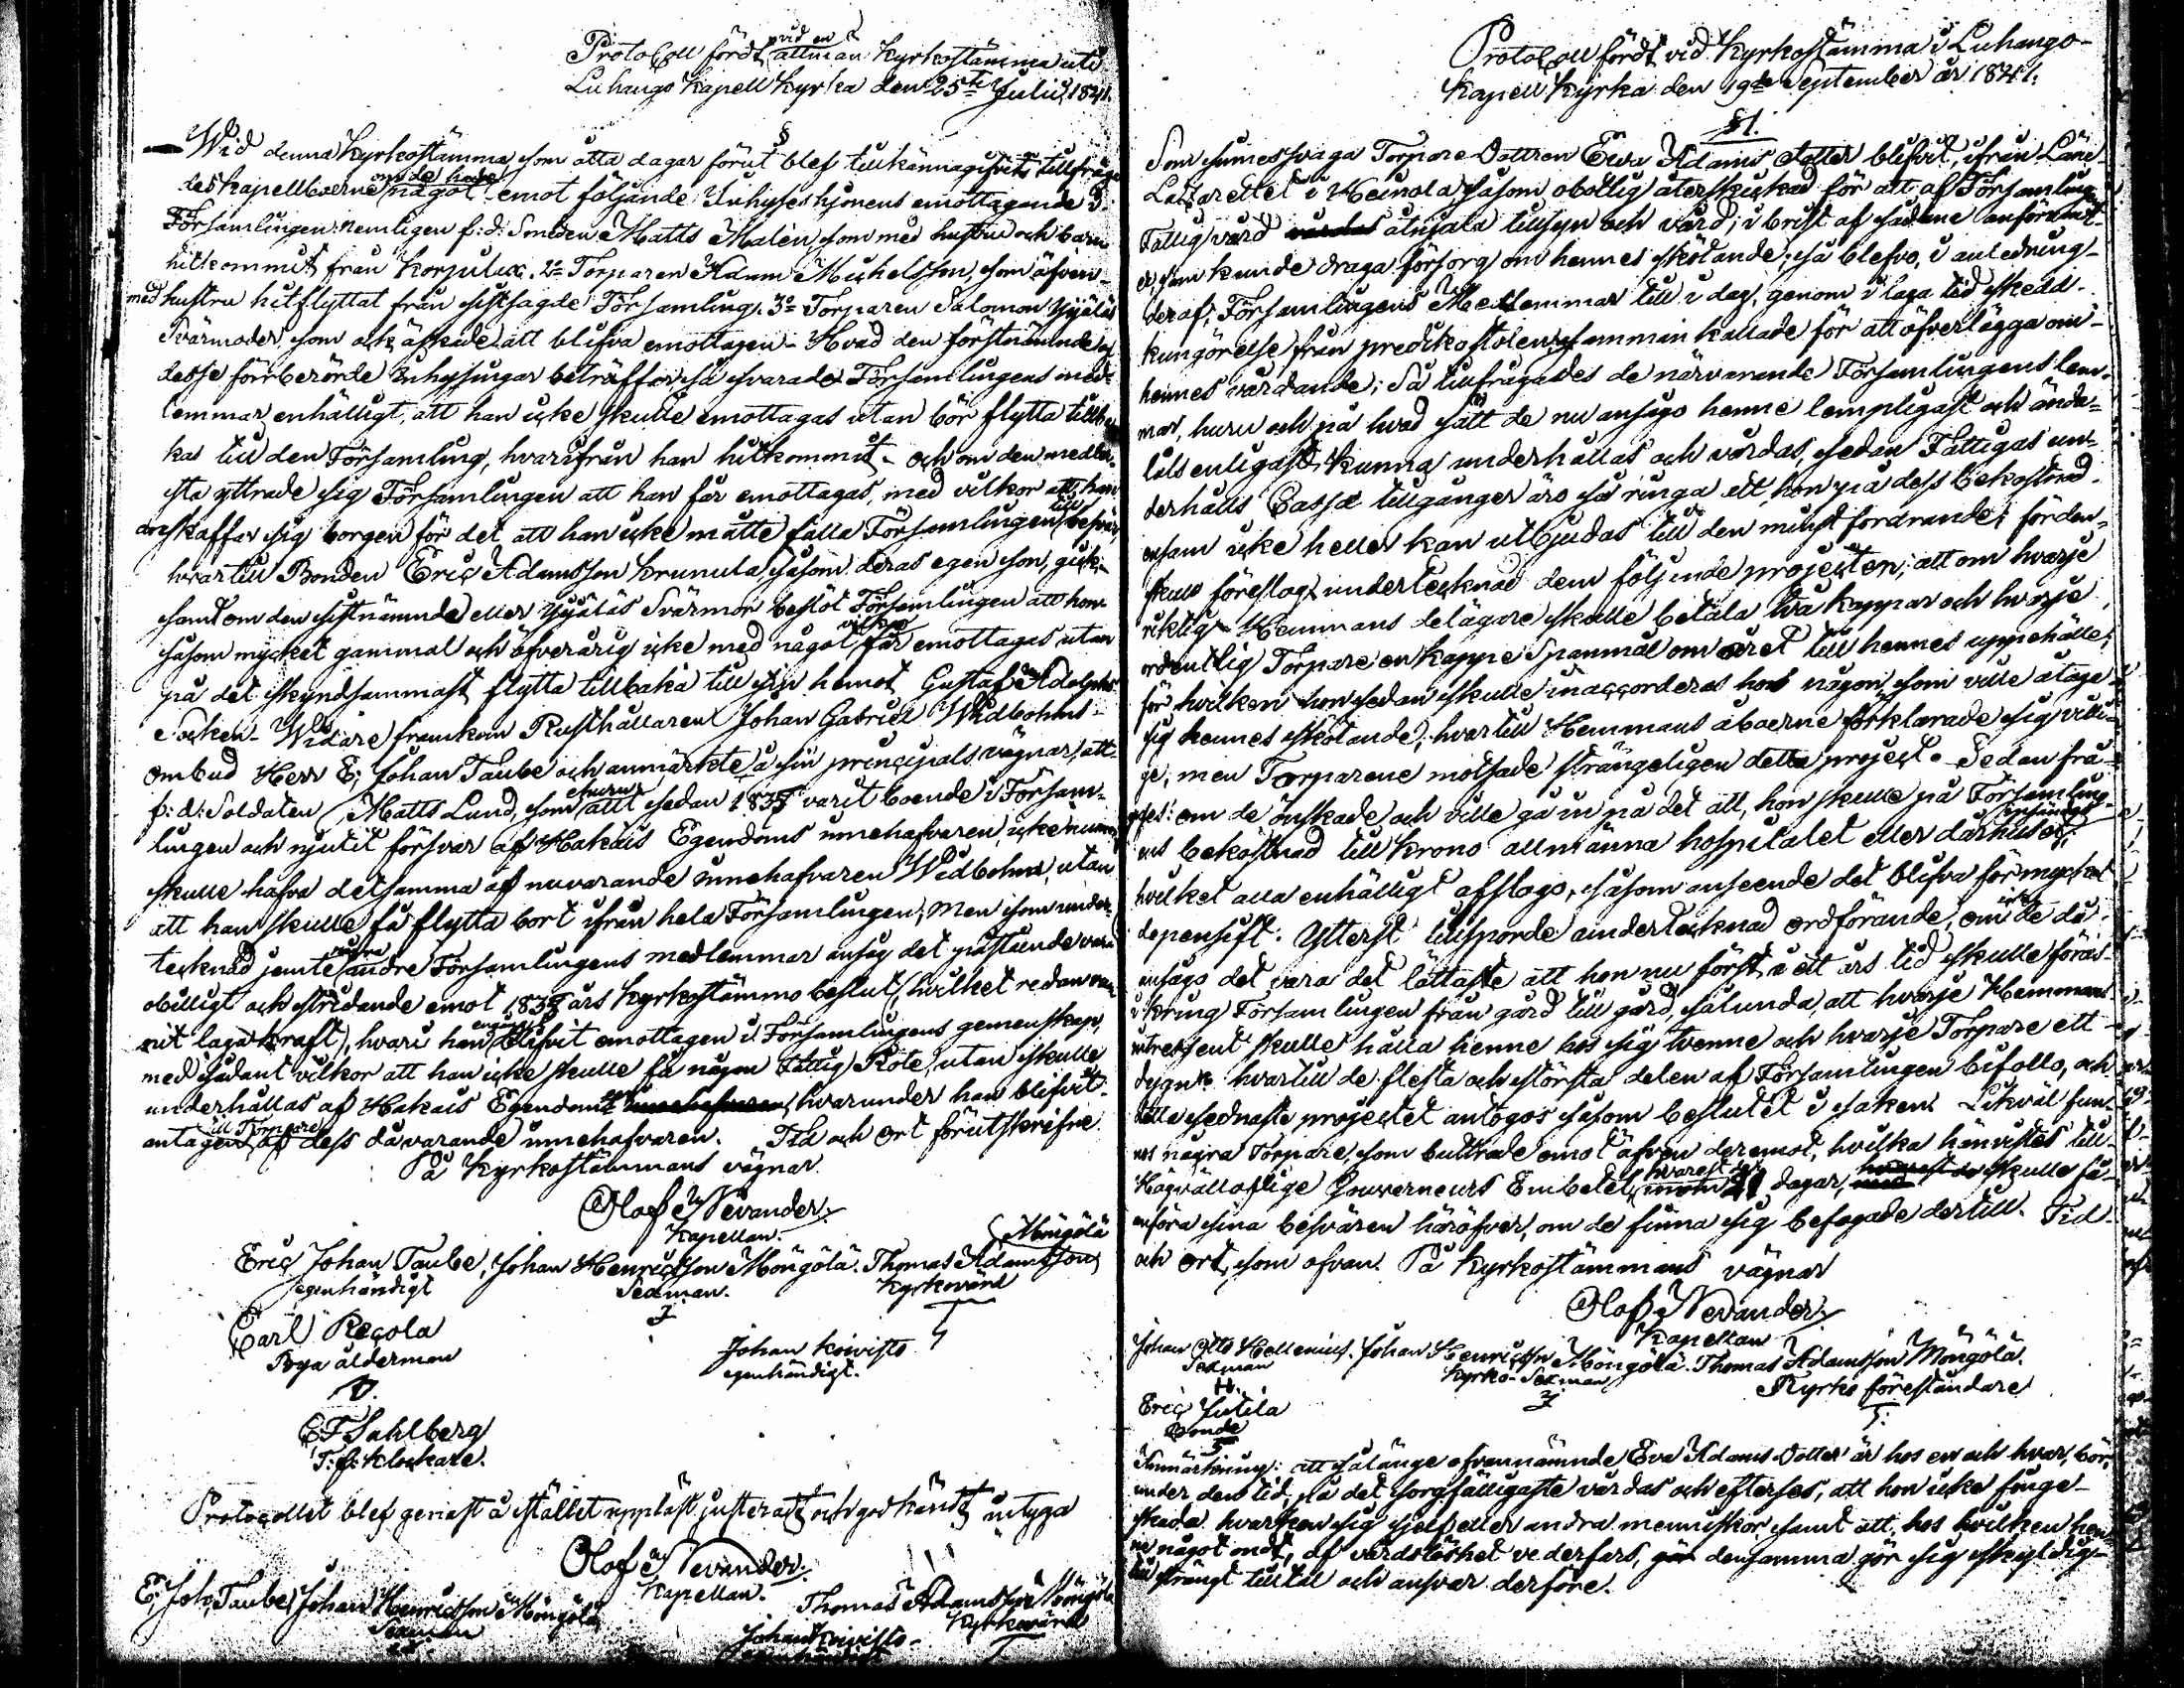 Protocoll fördt vid en allmän Kyrkostämma uti
Luhango Kapell Kyrka den 25te Julii 1841.
§
Wid denna Kyrkostämma, som åtta dagar förut blef tillkännagifvit, tillfråga-
des Kapellboerne om de hafva något emot följande Inhyseshjonens emottagande i
Församlingen: nemligen f: d: Smeden Matts Malén, som med hustru och barn
hitkommit från Korpilax. 2o Torparen Adam Michelsson, som äfven
med hustru hitflyttat från sistsagde Församling. 3o Torparen Salomon Yijäläs
Svärmoder, som ock äskade att blifva emottagen. Hvad den förstnämnde af
desse förrberörde Inhysingar beträffar, så svarade Församlingens med-
lemmar enhälligt, att han icke skulle emottagas utan bör flytta tillba-
kas till den Församling, hvarifrån han hitkommit. och om den medler-
sta yttrade sig Församlingen att han får emottagas, med vilkor att han
anskaffar sig borgen för det att han icke måtte falla Församlingen till besvär,
hvartill Bonden Eric Adamsson Krunula, såsom deras egen son, gick.
samt om den sistnämnde eller Yijäläs Svärmor beslöt Församlingen att hon
såsom mycket gammal och öfverårig icke med något vilkor får emottagas utan
på det skyndsammast flytta tillbaka till sin hemort Gustaf Adolphs
Socken. Widare framkom Rusthållaren Johan Gabriel Widbohms
ombud Herr E: Johan Taube och anmärkte å sin principals vägnar, att
f: d: Soldaten Matts Lund, som allt sedan 1837 varit boende i Försam-
lingen och njutit försvar af Hakais Egendoms innehafvaren, icke numera
skulle hafva detsamma af nuvarande innehafvaren Widbohm, utan
att han skulle få flytta bort ifrån hela Församlingen; Men som under-
tecknad jemte andre Församlingens medlemmar ansåg det påstående vara
obilligt och stridande emot 1838 års Kyrkostämmo beslut, (hvilket redan vun-
nit laga kraft), hvari han blifvit emottagen i Församlingens gemenskap,
med sådant vilkor att han icke skulle få någon Fattig Rote, utan skulle
underhållas af Hakais Egendom, hvarunder han blifvit
antagen till Torpare af dess dåvarande innehafvaren. Tid och Ort förutskrifne.
På Kyrkostämmans vägnar
Olof Nevander.
Kapellan.
Eric Johan Taube, Johan Henricsson Möngölä. Thomas Adamsson Möngölä
egenhändigt Sexman. Kyrkovärd
Carl Regola
Byå ålderman
Johan Koivisto
egenhändigt.
E F Sahlberg
T: f: Klockare.
Protocollet blef genast å stället uppläst, justeradt och godkändt, intyga
Olof Nevander.
Kapellan.
E: Joh. Taube, Johan Henricsson Möngölä Thomas Adamsson Möngölä
Sexman Kyrkovärd
Johan Koivisto
Protocoll fördt vid Kyrkostämma i Luhango-
Kapell Kyrka den 19de September år 1841.
§ 1.
Som sinnessvaga Torpare Dottren Ewa Adams dotter blifvit, ifrån Läne-
Lazarettet i Heinola, såsom obotlig återskickad för att af Församling
Fattigvård åtnjuta tillsyn och vård; i brist af sådane anförvandt-
er, som kunde draga försorg om hennes skötande; så blefvo, i anledning
deraf, Församlingens Medlemmar till i dag, genom i laga tid skedd
kungörelse från predikostolen, samman kallade för att öfverlägga om
hennes vårdande; Så tillfrågades de närvarande Församlingens lem-
mar, huru och på hvad sätt de nu ansågo henne lempligast och ända-
målsenligast kunna underhållas och vårdas, sedan Fattigas un-
derhålls Cassa tillgånger äro så ringa att hon på dess bekostnad
ensam icke heller kan utbjudas till den minst fordrande; förden-
skull föreslog undertecknad dem följande projecten; att om hvarje
riktig Hemmans delägare skulle betala två kappar och hvarje
ordentlig Torpare en kappe Spanmål om året till hennes uppehälle;
för hvilken hon sedan skulle inaccorderas hos någon som ville åtaga
sig hennes skötande; hvartill Hemmans åboerne förklarade sig villi-
ge, men Torparene motsade strängeligen detta project. Sedan frå-
gades: om de önskade och ville gå in på det att, hon skulle på Församling-
ens bekostnad till Krono allmänna hospitalet eller dårhuset,
hvilket alla enhälligt afslogo, såsom anseende det blifva för mycket
depensift. Ytterst tillsporde undertecknad ordförande, om icke de då
ansågo det vara det lättaste att hon nu först i ett års tid skulle föras
i kring Församlingen från gård till gård, sålunda, att hvarje Hemmans
intressent skulle hålla henne hos sig tvenne och hvarje Torpare ett
dygn. hvartill de flesta och största delen af Församlingen biföllo, och
detta sednaste projectet antogos såsom beslutet i saken. Likväl fun-
nos några Torpare, som buttrade emot äfven deremot, hvilka hänvistes till
Högvällofliga Gouverneurs Embetet, hvarest de inom 21 dagar, skulle få
anföra sina besvären häröfver, om de finna sig befogade dertill. Tid
och Ort, som ofvan. På Kyrkostämmans vägnar
Olof Nevander.
Kapellan
Johan Otto Hellenius. Johan Henricsson Möngölä. Thomas Adamsson Möngölä.
Sexman Kyrko-Sexman Kyrko föreståndare
Eric Jutila
Bonde
Anmärkning: att sålänge ofvannämnde Eva Adams Dotter är hos en och hvar, bör,
under den tid, på det sorgfälligaste vårdas och efterses, att hon icke finge
skada hvarken sig sjelf eller andra menniskor samt att, hos hvilken hen-
ne något ondt, af vårdslöshet vederfars, densamma gör sig skyldig
till strängt tilltal och ansvar derföre.